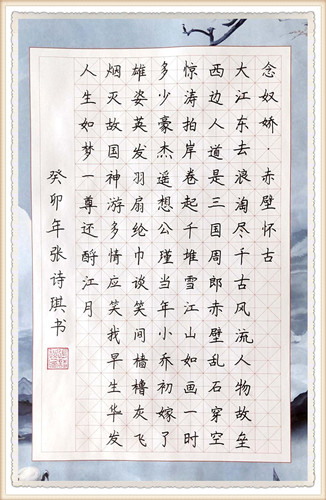 念奴娇·赤壁怀古
大江东去浪淘尽千古风流人物故垒
西边人道是三国周郎赤壁乱石穿空
惊涛拍岸卷起千堆雪江山如画一时
多少豪杰遥想公瑾当年小乔初嫁了
雄姿英发羽扇纶巾谈笑间樯橹灰飞
烟灭故国神游多情应笑我早生华发
人生如梦一尊还酹江月
癸卯年张诗琪书